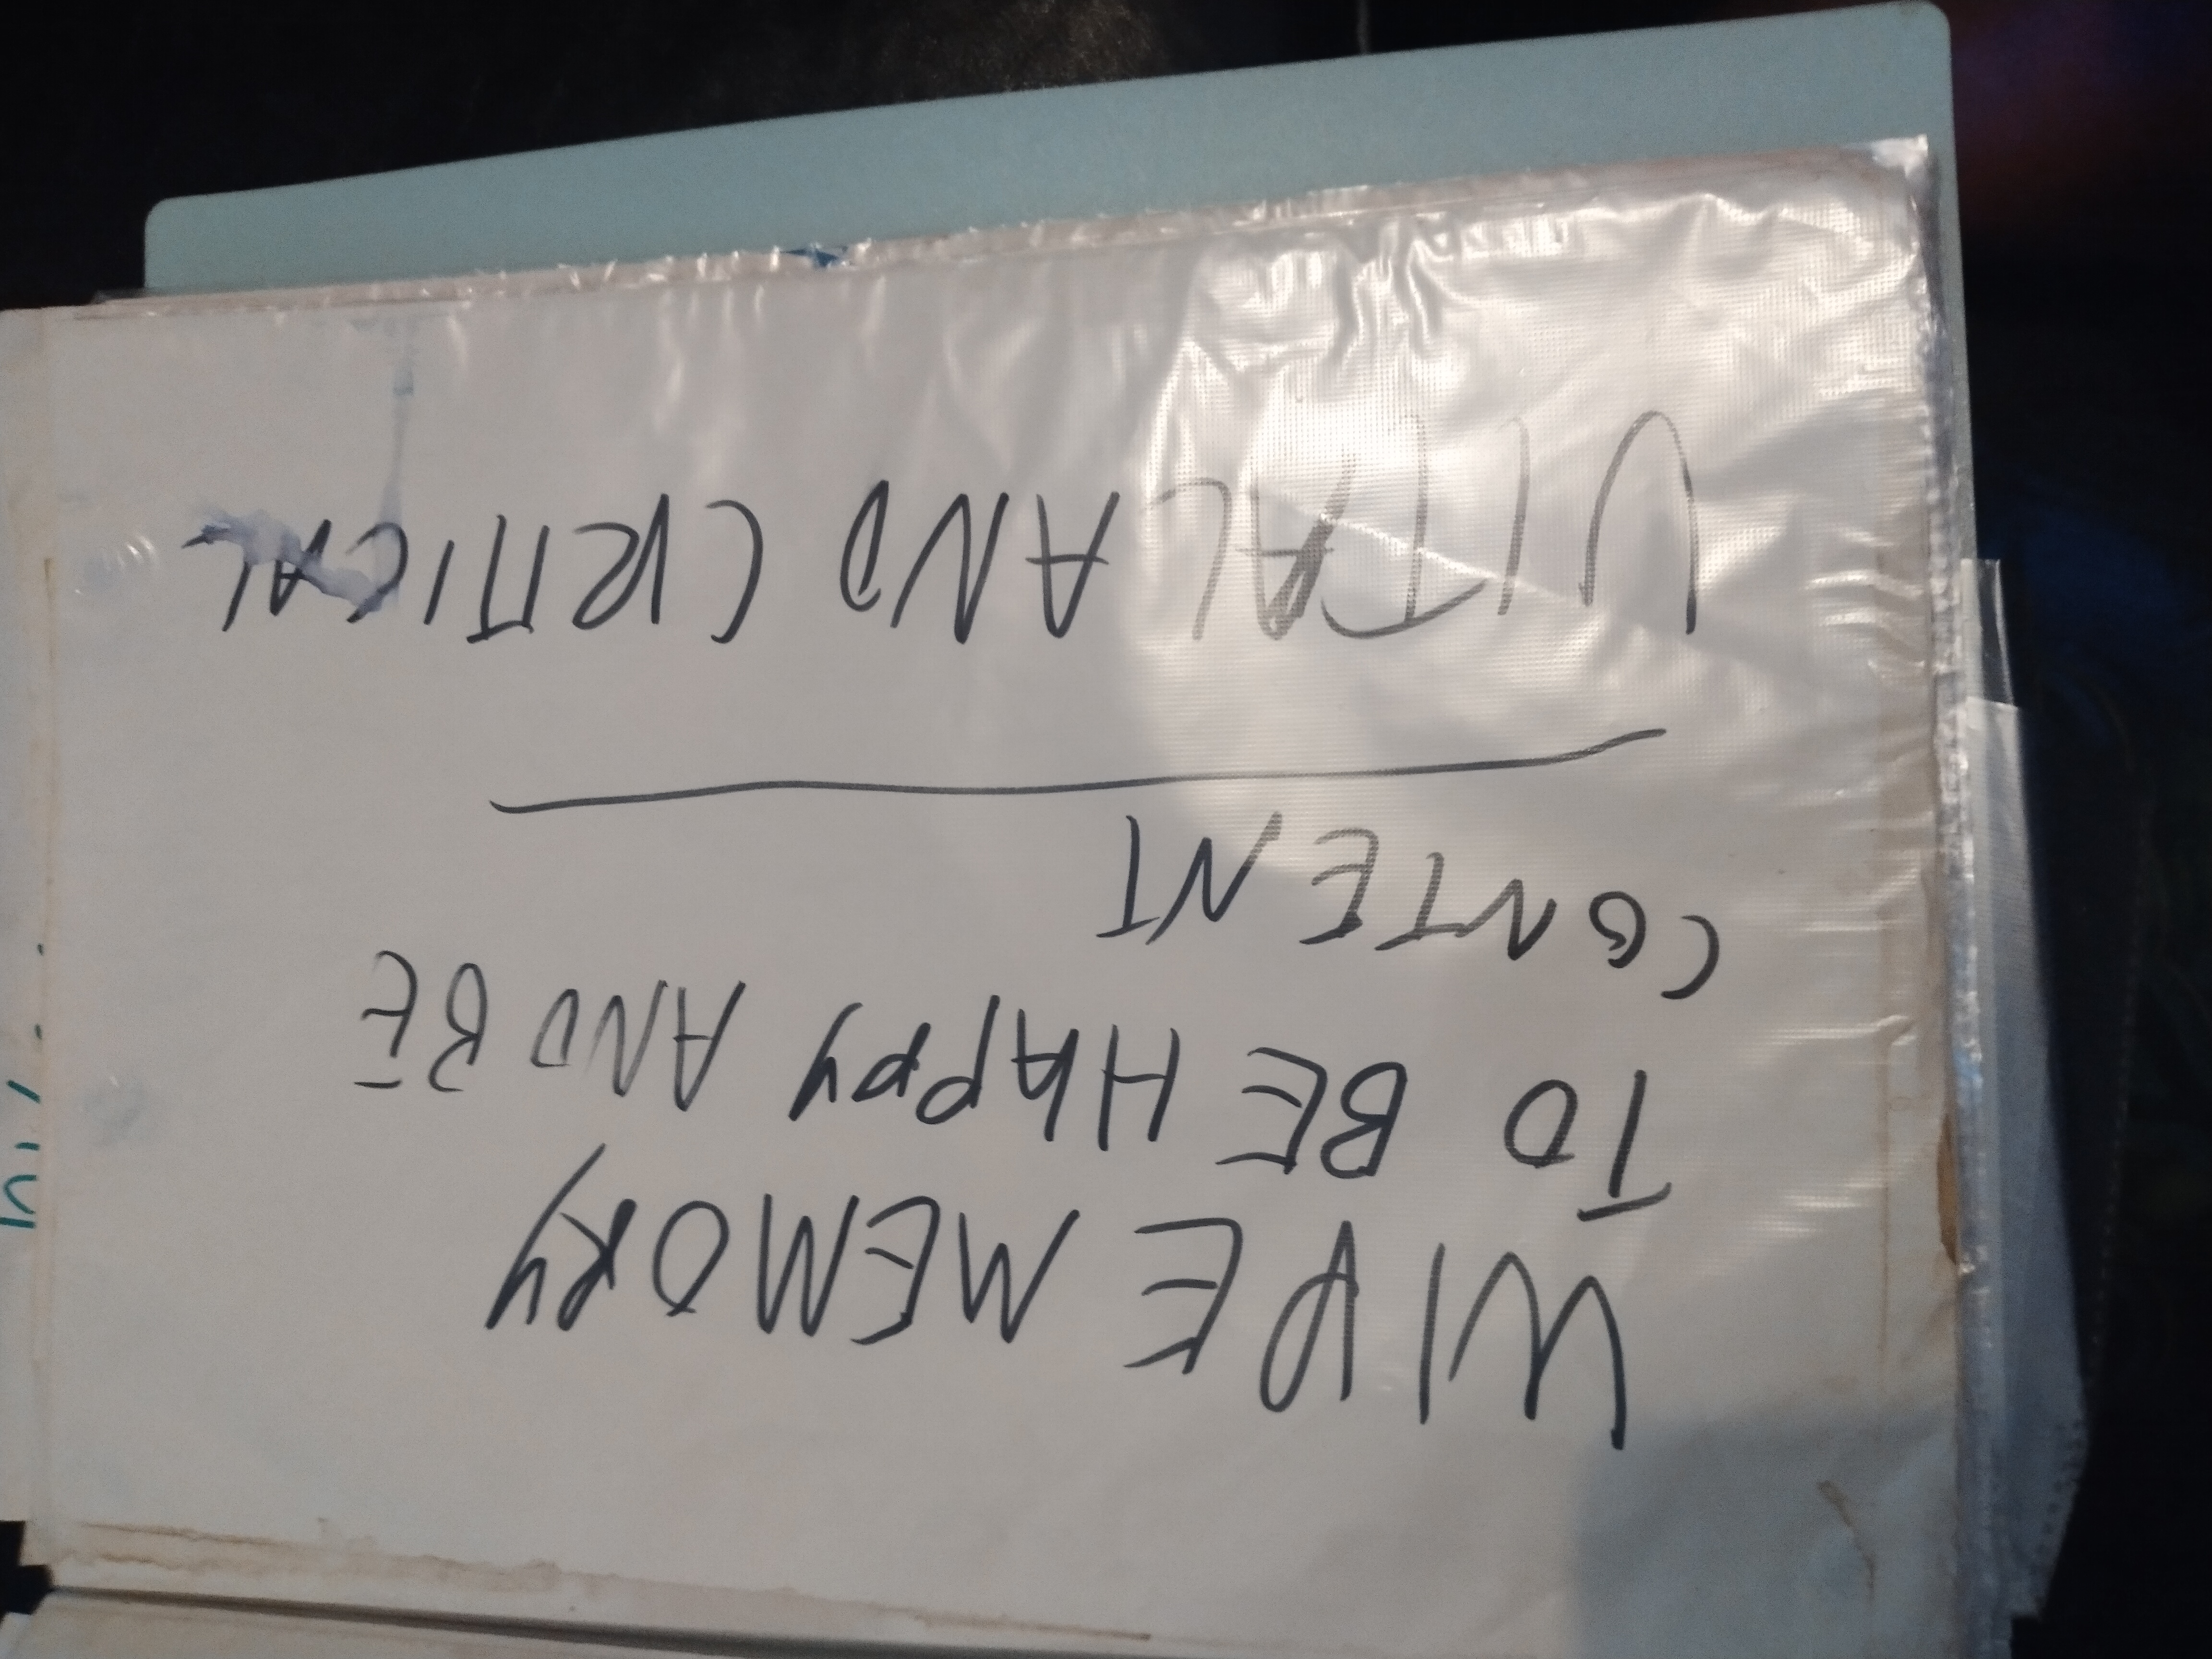 WIPE MEMORY
TO BE HAPPY AND BE
CONTENT
VITAL AND CRITICAL